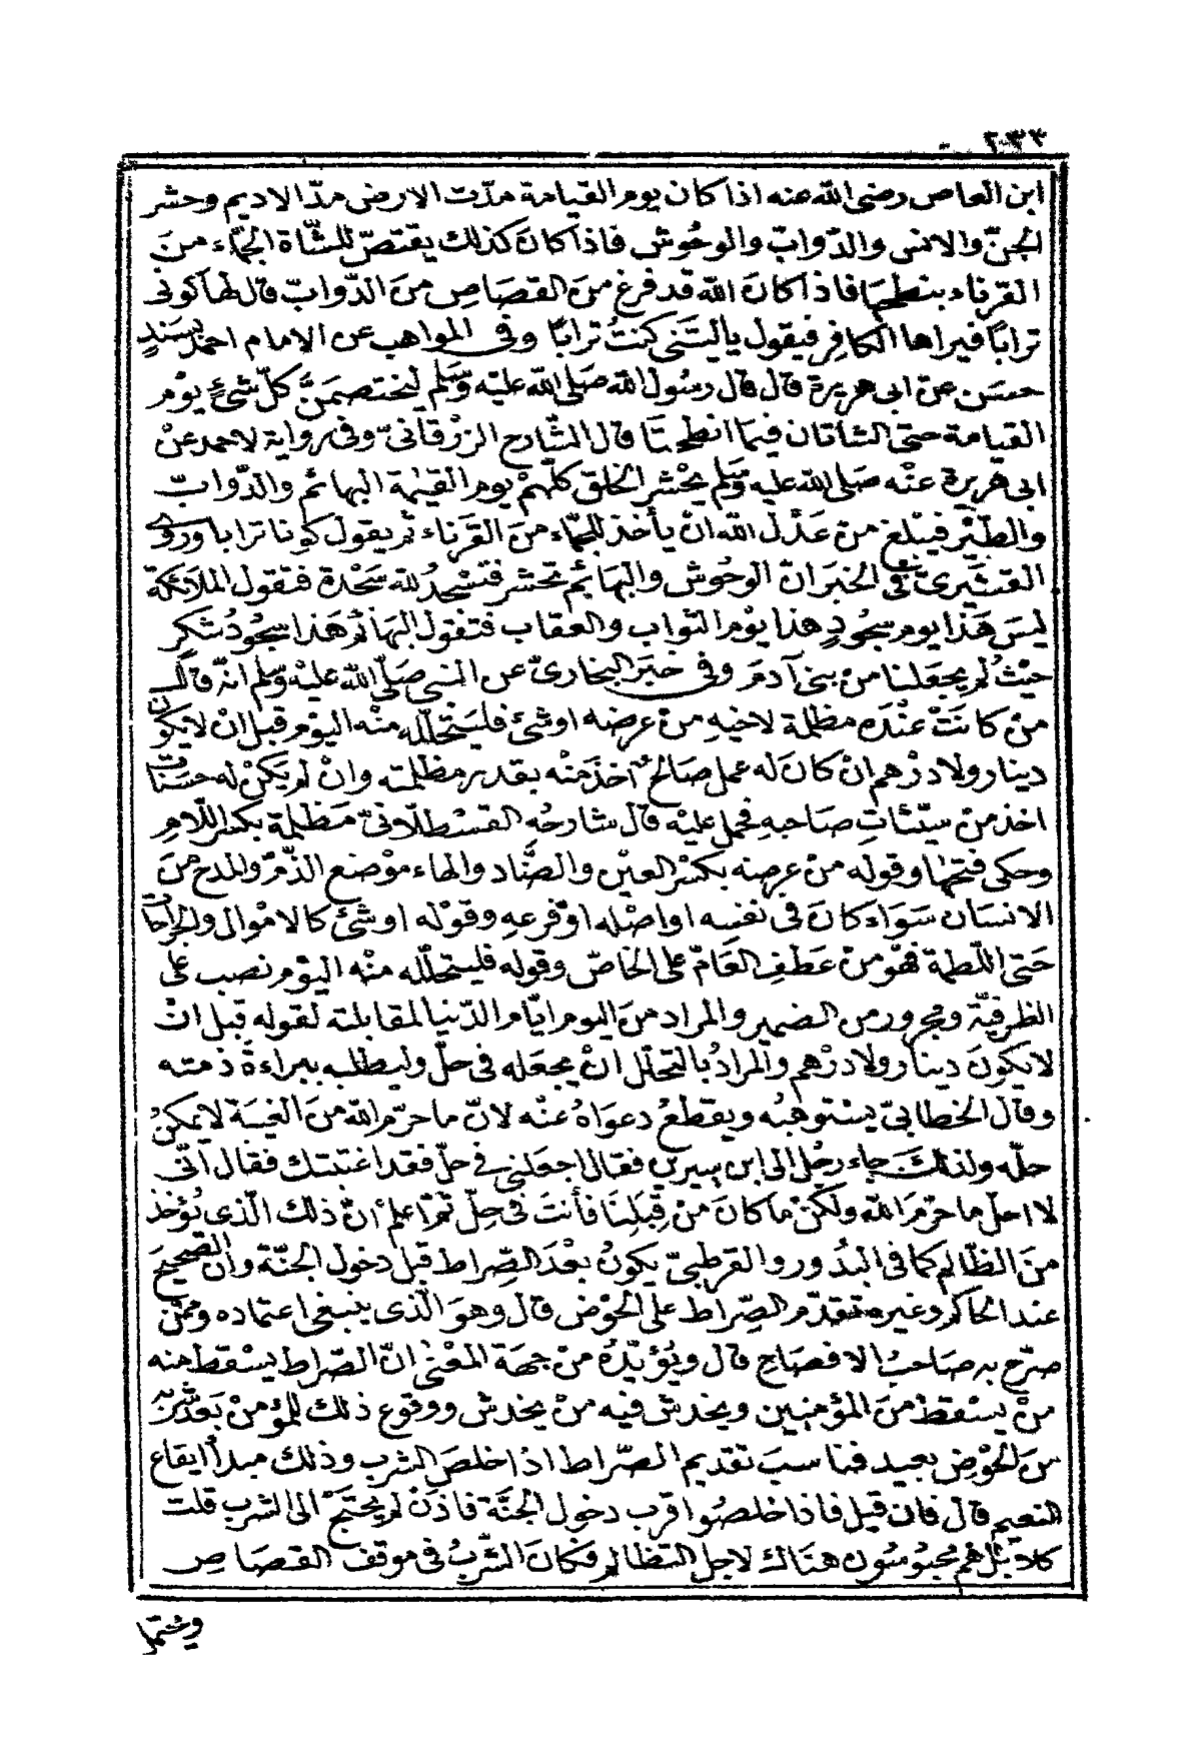 ٢٠٣٤
ابن العاص رضى الله عنه اذا كان يوم القيامة مدّت الارض مدّ الاديم وحشر
الجنّ والانس والدّوابّ والوحُوش فاذا كانَ كذلك يقتصّ للشّاة الجمّاء منَ
القرناء بنطحها فاذا كانَ الله قد فرغ منَ القصاصِ منَ الدّوابّ قال لها كونى
ترابًا فيراها الكافِر فيقول ياليتَنى كنتُ ترابًا وفى المواهب عن الامام احمد بسَندٍ
حسَن عن ابى هريرة قال قال رسُول الله صَلى الله عليْه وسَلم ليَختصمَنَّ كلّ شئٍ يوْم
القيامة حتى الشاتان فيما انطحتَا قال الشّارح الزرْقانىّ وفى رواية لاحمد عنْ
ابى هرَيرة عنْه صَلى الله عليه وسَلم يحْشر الخلق كلّهمْ يوم القيٰمة البهائم والدّوابّ
والطيْر فيبْلغ من عَدْل الله انْ يأخذ للجمّاء منَ القَرناء ثم يقول كونا ترابا وروى
القشَيْرى فى الخبَر انّ الوحُوش والبهَائم تحشر فتسْجدُ لله سَجْدة فتقول الملاَئكة
ليسَ هَذا يوم سجُودٍ هذا يوْم الثواب والعقاب فتقول البهَائم هَذا سجُودُ شكرٍ
حيْثُ لم يجعَلنا منْ بنى آدمَ وفى خبَر البخارىّ عن النبى صَلّى الله عليْه وَسّلم انّه قالَ
منْ كانَتْ عنْدَه مظلمة لاخيهِ منْ عرضه اوشئ فليَتحلّله منْه اليوْم قبل انْ لايكونَ
دينار ولا درْهم انْ كانَ له عمل صَالحٌ اخذَ منْه بقدر مظلمته وانْ لم يكنْ له حسَنات
اخذ منْ سيّئاتِ صَاحبهِ فحمل عليْه قالَ شارحُهِ القسْطلاّنىّ مَظلمة بكسْر اللاّم
وحكى فتحُها وقوله منْ عرضه بكسْر العيْن والضّاد والهاء موْضع الذّمّ والمدح منَ
الانسَان سَوَاء كانَ فى نفسه او اصْله اوْ فرعهِ وقوْله او شئ كالامْوال والجراحات
حَتى اللّطمة فهْوَ منْ عَطفِ العَامّ على الخاصّ وقوله فليتحلّله منْه اليوْم نصب على
الظرفيّة ومجرور من الضمير والمراد منَ اليوم ايّام الدّنيا لمقابلته لقوله قبل انْ
لايكونَ دينار ولا درْهم والمرادُ بالتحلل انْ يجعَله فى حلّ وليطلبه ببراءةَ ذمته
وقال الخطابىّ يسْتوْهبُه ويقطعُ دعوَاهُ عنْه لانّ ما حرّم الله منَ الغيبَة لايمكنُ
حلّه ولذلكَ جاء رجُل الى ابن سيرينِ فقال اجعَلنى فى حلّ فقد اغتبتك فقال انّى
لا احل ما حرّمَ الله ولكنْ ما كانَ منْ قِبَلِنَا فأنتَ فى حِلّ ثمّ اعلم انّ ذلك الّذى يُؤخذ
منَ الظّالم كما فى البدُور والقرطبىّ يكونُ بعْدَ الصِّراط قبْل دخول الجنّة وانّ الصَّحيحَ
عند الحاكم وغيره تقدّم الصِّراط على الحوْض قال وهوَ الّذى ينبغى اعتماده وممّنْ
صرّح به صَاحبُ الافصَاحِ قال ويُؤيّدُهُ منْ جهَة المعْنى انّ الصّراط يسْقط منه
منْ يسْقط منَ المؤمنِين ويخدش فيه منْ يخدش ووقوع ذلك للمؤمنْ بَعد شرْبه
منَ الحوْض بعيد فناسبَ تقديم الصّراط اذا خلصَ الشرب وذلك مبدأ ايقاع
النعيم قالَ فان قيل فاذا خلصُوا قرب دخول الجنّة فاذنْ لم يحتَجْ الى الشرب قلت
كلاّ بْل هم محبُوسُون هنَاك لاجل التظالم فكانَ الشّربُ فى موقف القصَاص
ويحتمل